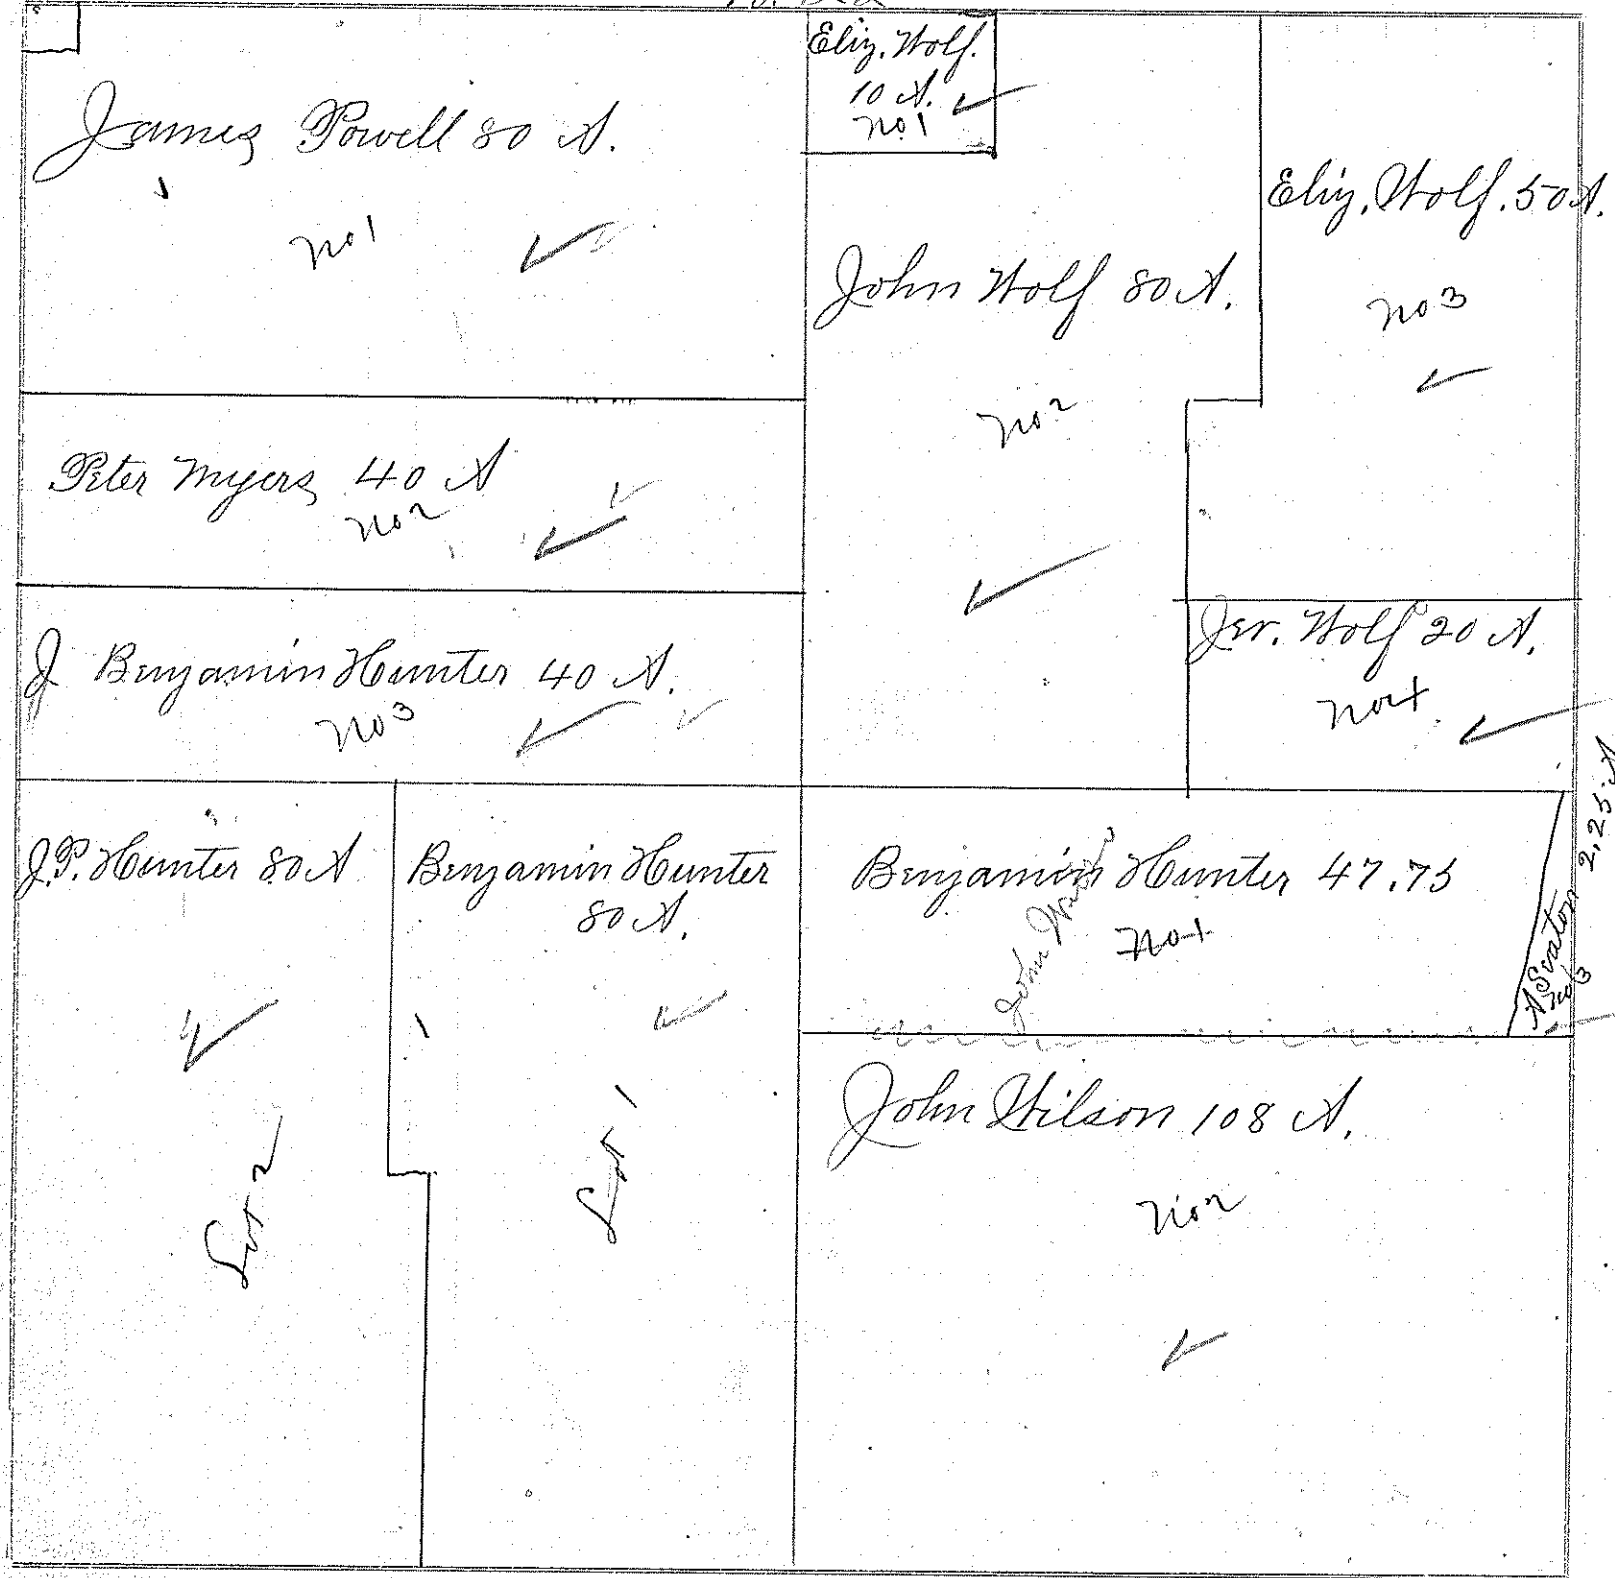 James Powell 80 A.
No 1
Eliz. Wolf.
10 A.
No. 1
John Wolf 80 A.
No 2
Eliz. Wolf. 50 A.
No 3
Peter Myers 40 A
No 2
J Benjamin Hunter 40 A.
No 3
Jer. Wolf 20 A.
No 4
J.P. Hunter 80 A
Lot 2
Benjamin Hunter
80 A.
Lot 1
Benjamin Hunter 47.75
No 1
John
A Seaton 2,25 A
No 3
John Wilson 108 A.
No 2